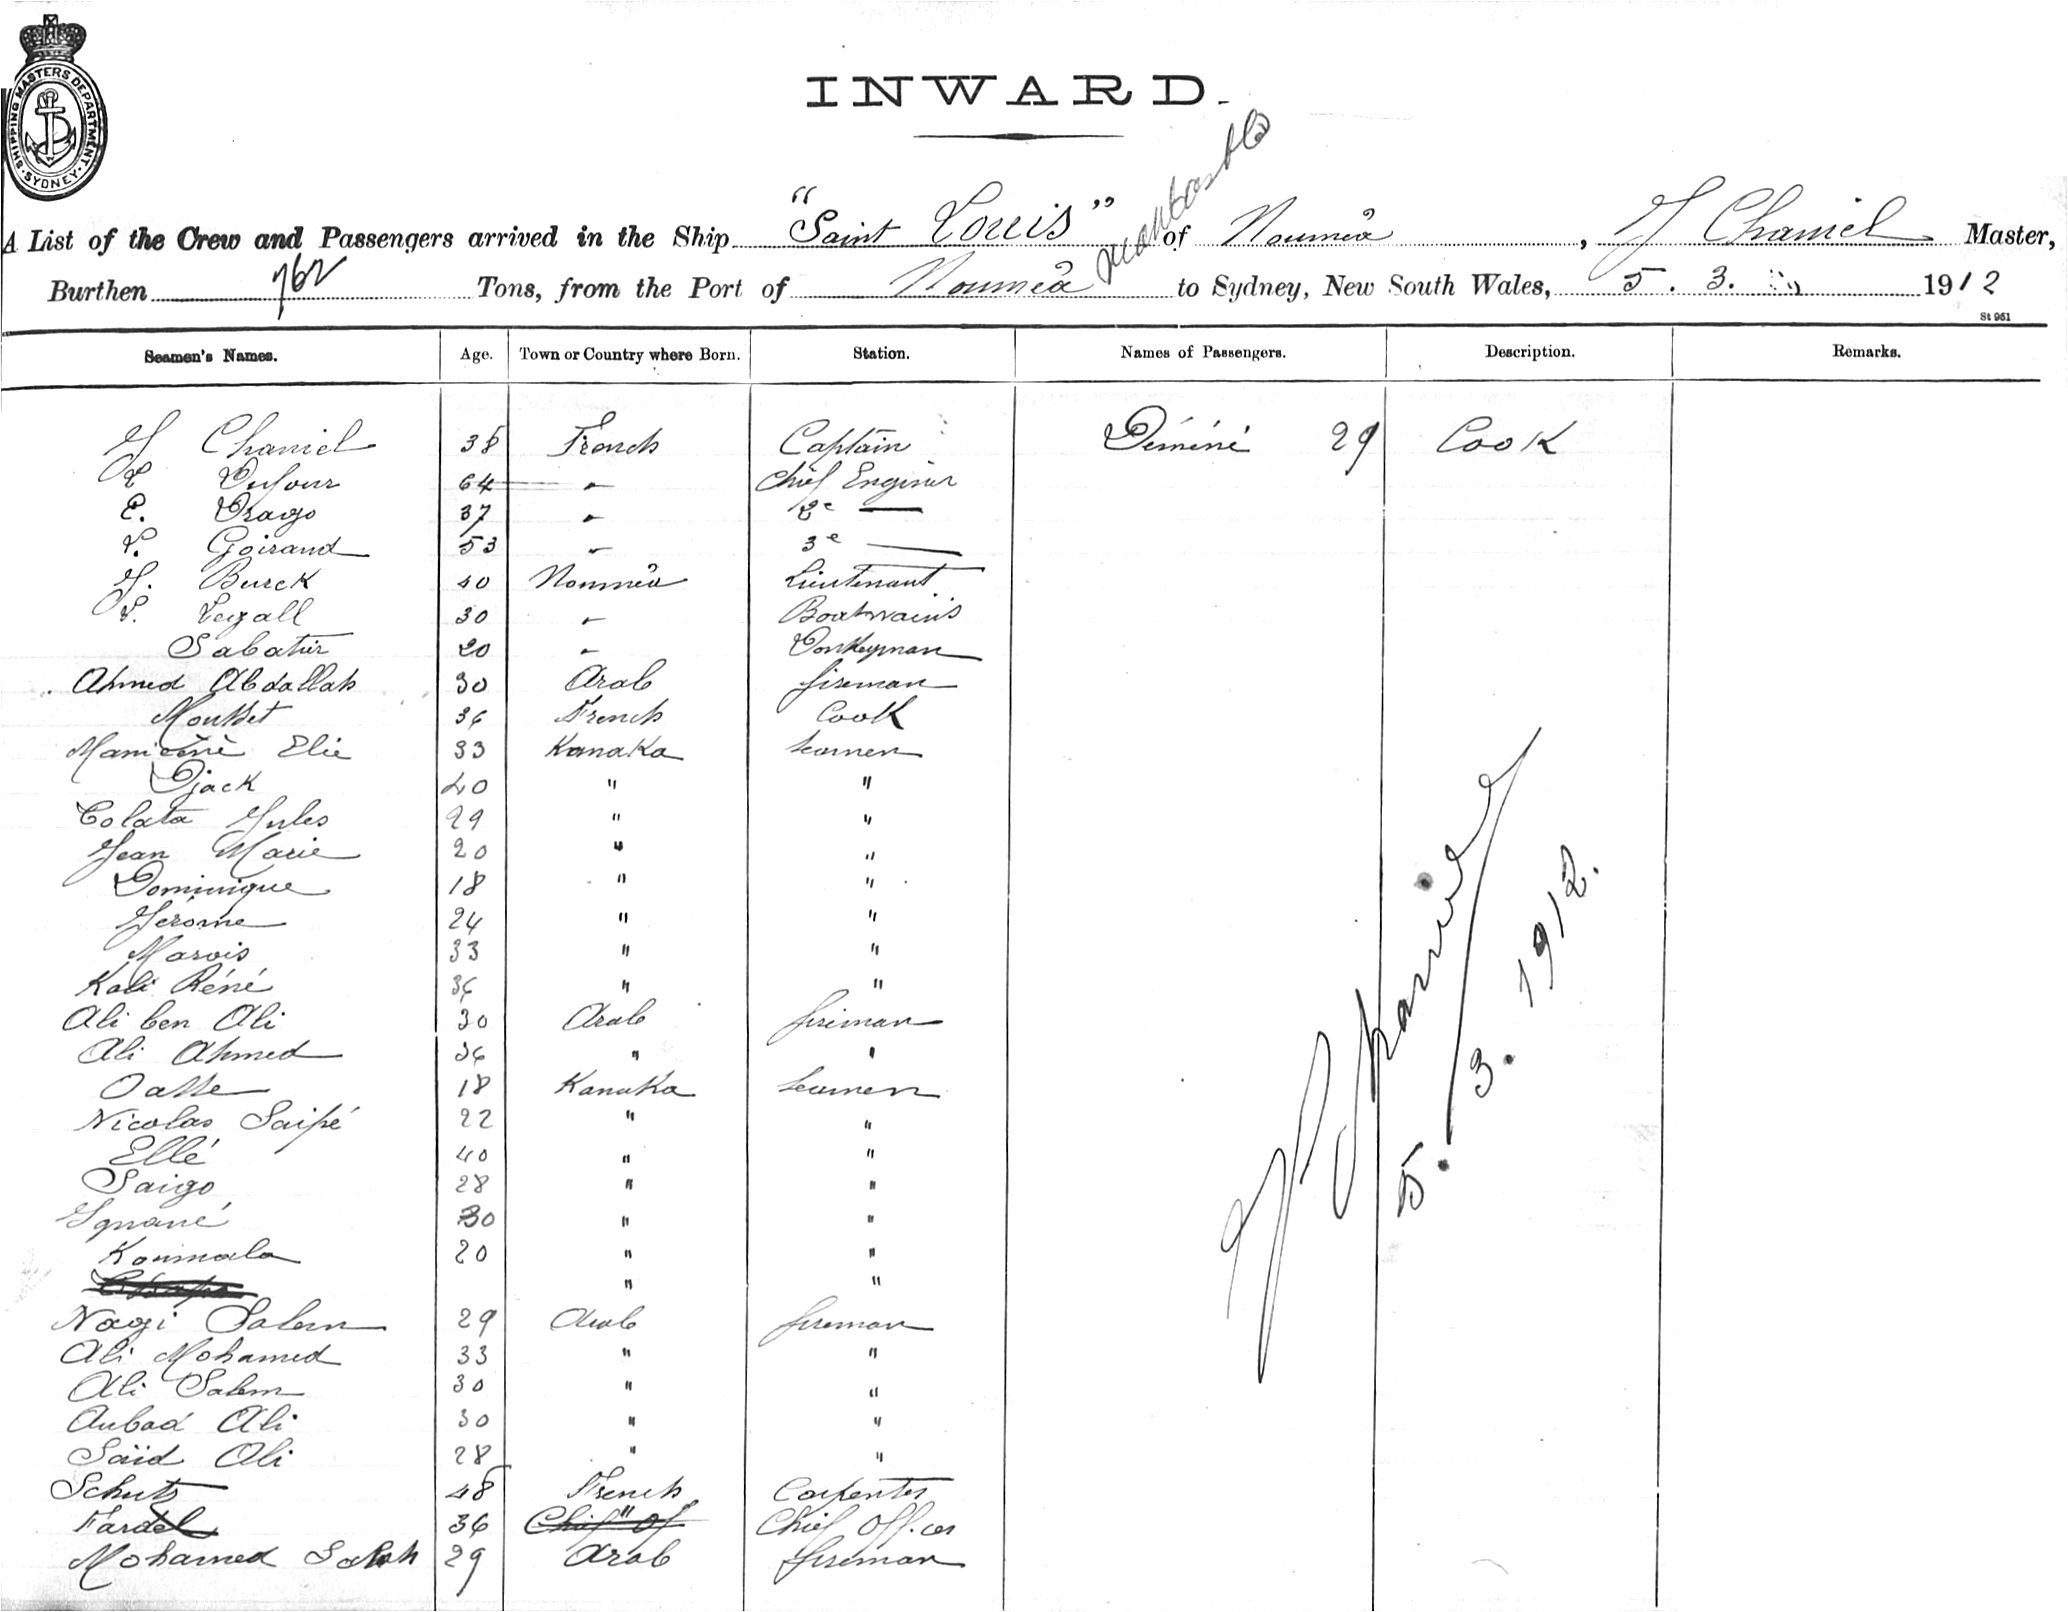 SHIPPING MASTERS DEPARTMENT. SYDNEY.
INWARD.
A List of the Crew and Passengers arrived in the Ship "Saint Louis" of Nouméa, J Chaniel Master,
Burthen 762 Tons, from the Port of Nouméa to Sydney, New South Wales, 5. 3. 1912
St 951
Seamen's Names. Age. Town or Country where Born. Station. Names of Passengers. Description. Remarks.
J Chaniel 38 French Captain Déminé 29 Cook
Dufour 64 " Chief Enginir
E. Drago 37 " 2e —
V. Goirand 53 " 3e —
J. Burck 40 Nouméa Lieutenant
Legall 30 " Boatswain's
Sabatier 20 " Donkeyman
Ahmed Abdallah 30 Arab fireman
Mousset 36 French Cook
Elie 33 Kanaka seamen
Djack 40 " "
Colata Jules 29 " "
Jean Marie 20 " "
Dominique 18 " "
Jérôme 24 " "
Marois 33 " "
Kali Réné 36 " "
Ali ben Ali 30 Arab fireman
Ali Ahmed 36 " "
18 Kanaka seamen
Nicolas Saipé 22 " "
Ellé 40 " "
Saigo 28 " "
Ignané 30 " "
Koumala 20 " "
" "
Nagi Salem 29 Arab fireman
Ali Mohamed 33 " "
Ali Salem 30 " "
Aubad Ali 30 " "
Saïd Ali 28 " "
Schutz 48 French Carpenter
Fardel 36 Chief " of Chief Officer
Mohamed Salah 29 Arab fireman
J Chaniel
5. 3. 1912.